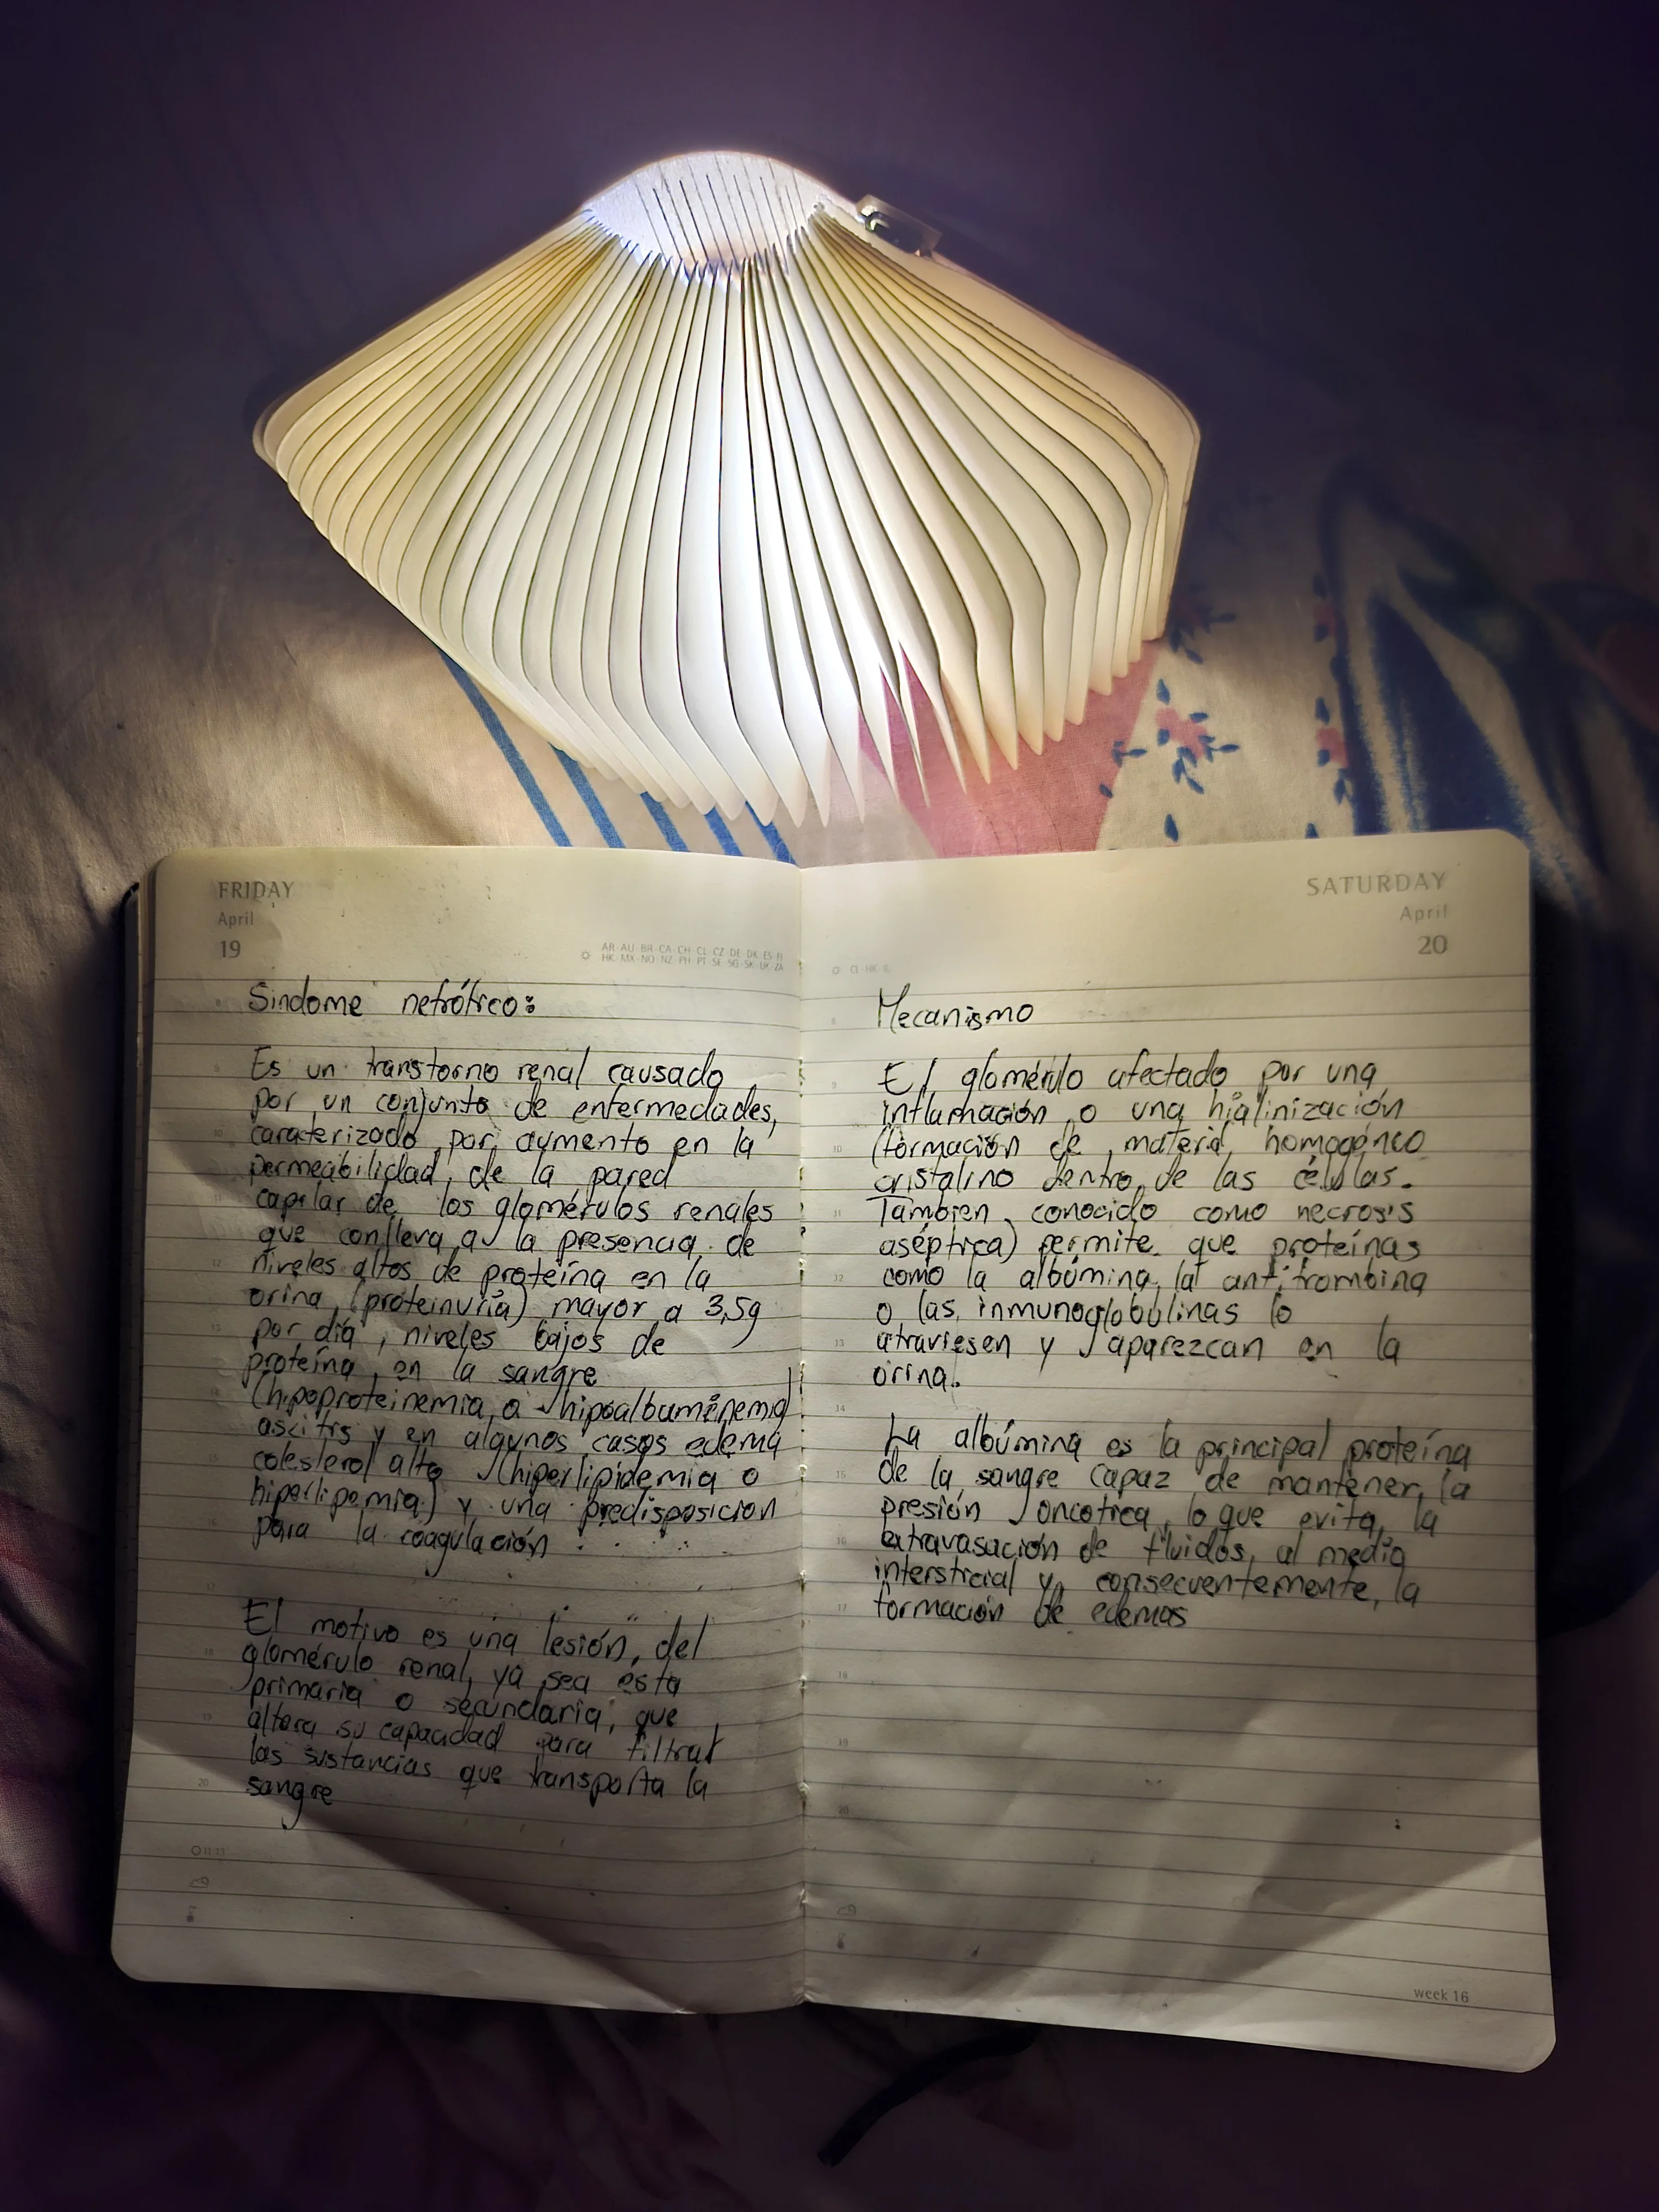 FRIDAY
April
19
AR·AU·BR·CA·CH·CL·CZ·DE·DK·ES·FI
HK·MX·NO·NZ·PH·PT·SE·SG·SK·UK·ZA
Síndome nefrótico:
Es un transtorno renal causado
por un conjunto de enfermedades,
caraterizado por aumento en la
permeabilidad de la pared
capilar de los glomérulos renales
que conlleva a la presencia de
niveles altos de proteína en la
orina (proteinuria) mayor a 3,5g
por día, niveles bajos de
proteína en la sangre
(hipoproteinemia o hipoalbuminemia)
ascitis y en algunos casos edema
colesterol alto (hiperlipidemia o
hiperlipemia) y una predisposicion
para la coagulación
El motivo es una lesión del
glomérulo renal, ya sea esta
primaria o secundaria, que
altera su capacidad para filtrar
las sustancias que transporta la
sangre
SATURDAY
April
20
CL·HK·IL
Mecanismo
El glomérulo afectado por una
inflamación o una hialinización
(formación de material homogéneo
cristalino dentro de las células.
Tambien conocido como necrosis
aséptica) permite que proteínas
como la albúmina, la antitrombina
o las inmunoglobulinas lo
atraviesen y aparezcan en la
orina.
La albúmina es la principal proteína
de la sangre capaz de mantener la
presión oncotica, lo que evita la
extravasación de fluidos al medio
intersticial y, consecuentemente, la
formación de edemas
week 16